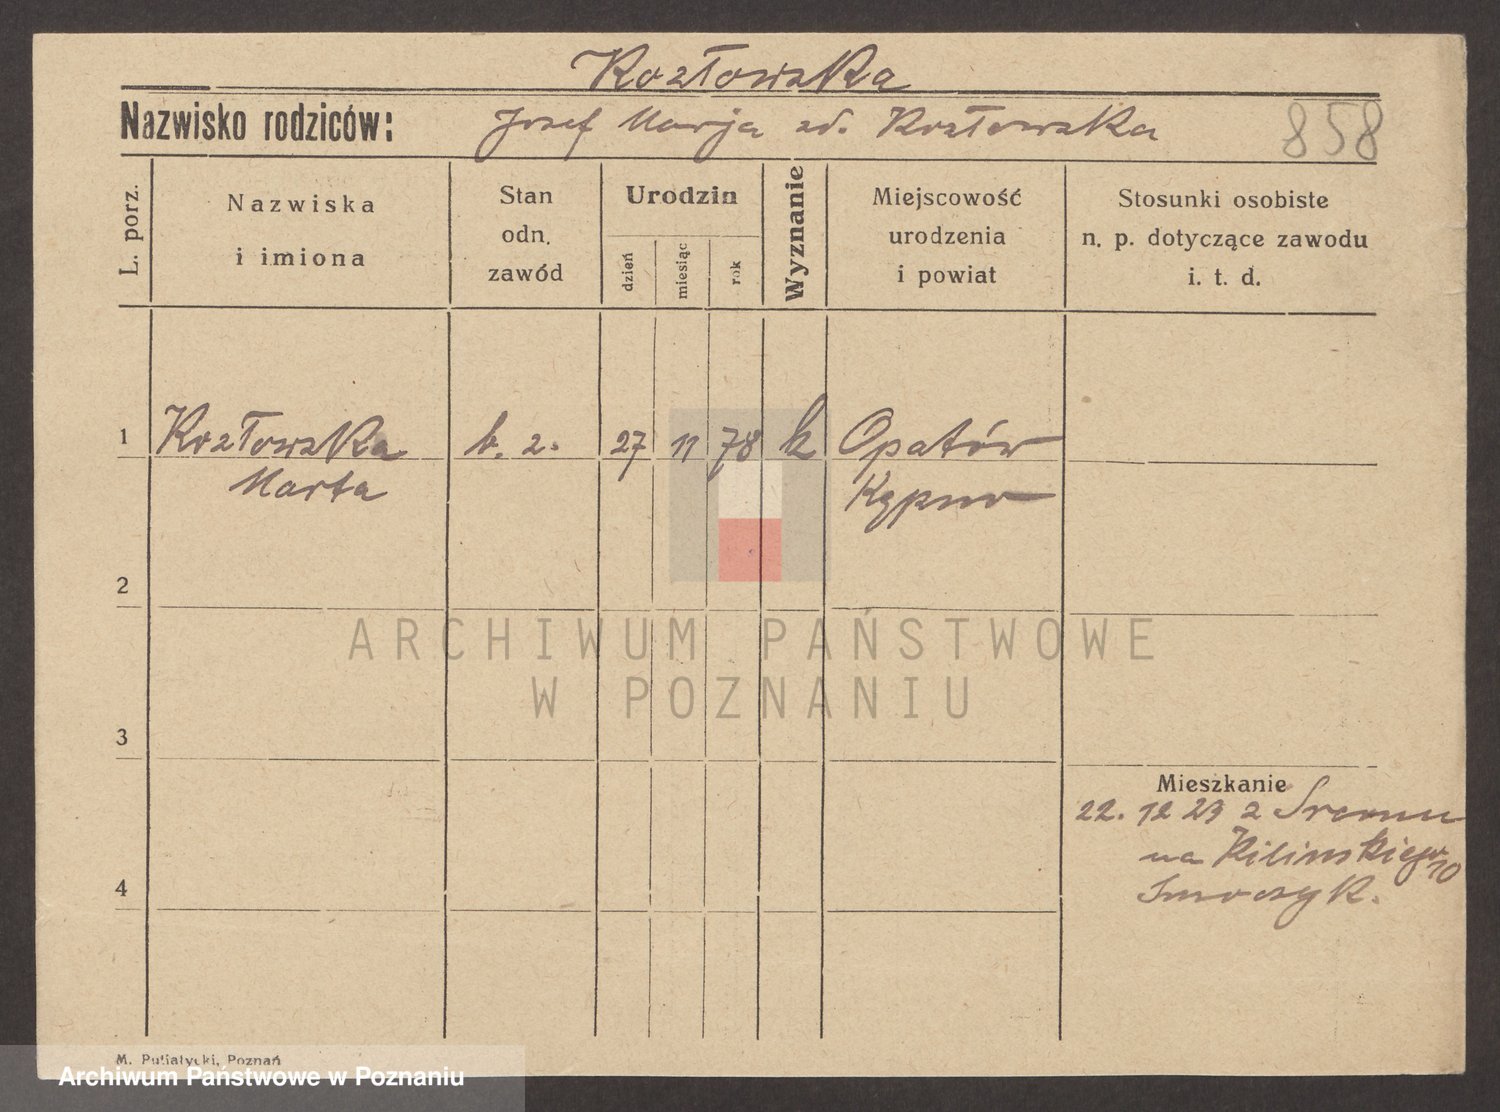 Kozłowska
Nazwisko rodziców: Josef Marja zd. Kozłowska
858
L. porz.
Nazwiska
i imiona
Stan
odn.
zawód
Urodzin
dzień
miesiąc
rok
Wyznanie
Miejscowość
urodzenia
i powiat
Stosunki osobiste
n. p. dotyczące zawodu
i. t. d.
1 Kozłowska b. z. 27 11 78 k Opatów
Marta Kępno
2
ARCHIWUM PAŃSTWOWE
W POZNANIU
3
Mieszkanie
22. 12 23 z Śremu
na Kilinskiego 10
4
M. Putiatycki, Poznań
Archiwum Państwowe w Poznaniu